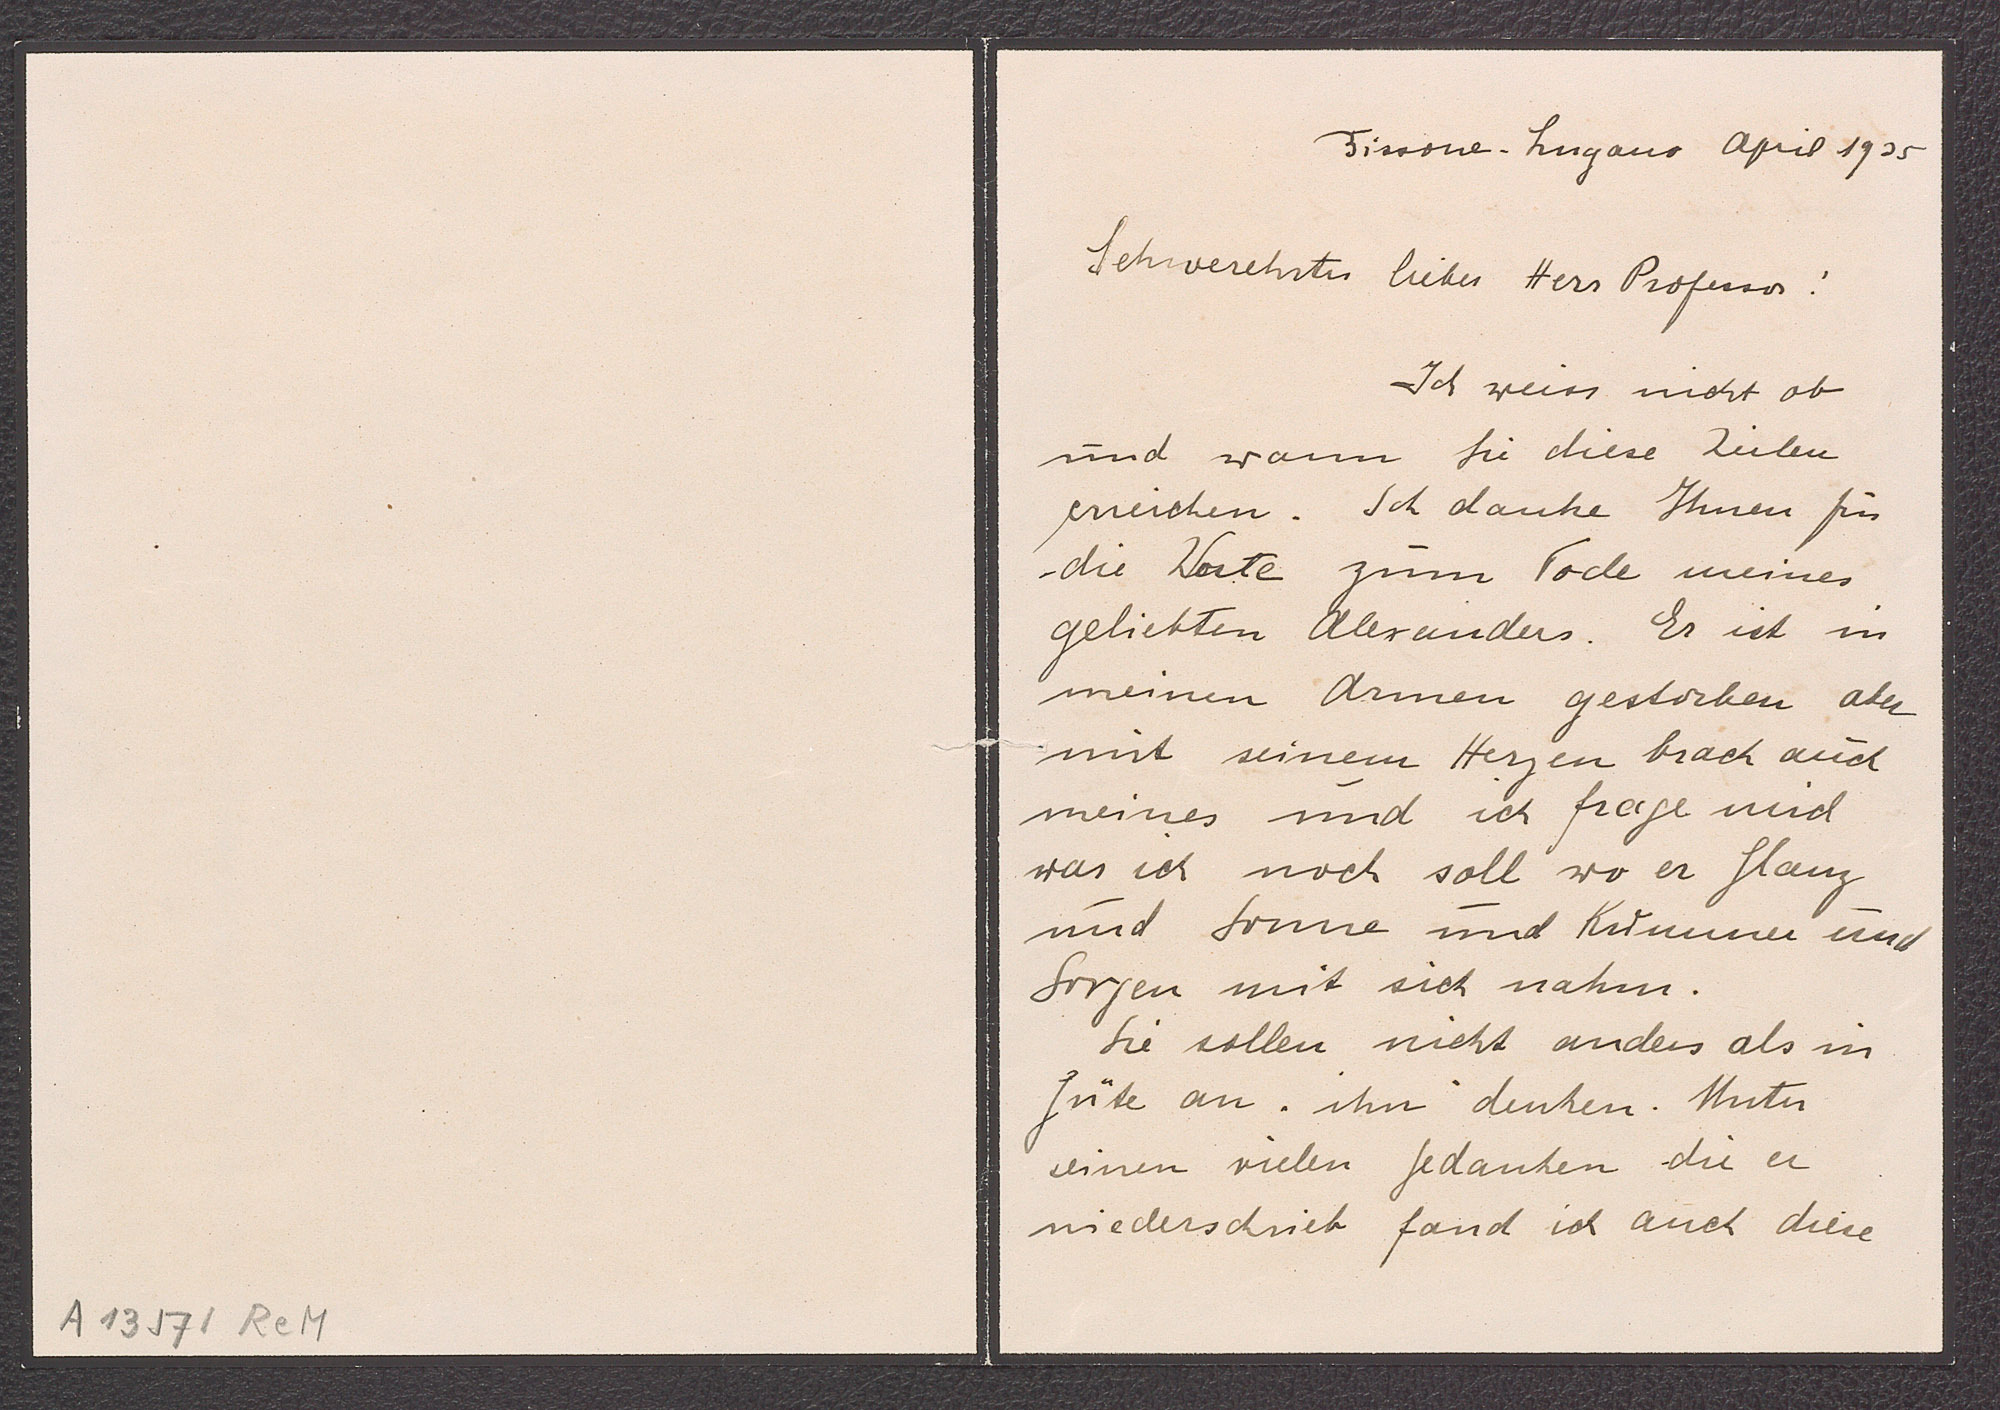 A 13571 ReM
Fissone - Lugano April 1935
Sehrverehrter lieber Herr Professor!
Ich weiss nicht ob
und wann Sie diese Zeilen
erreichen. Ich danke Ihnen für
die Worte zum Tode meines
geliebten Alexanders. Er ist in
meinen Armen gestorben aber
mit seinem Herzen brach auch
meines und ich frage mich
was ich noch soll wo er Glanz
und Sonne und Kummer und
Sorgen mit sich nahm.
Sie sollen nicht anders als in
Güte an ihn denken. Unter
seinen vielen Gedanken die er
niederschrieb fand ich auch diese